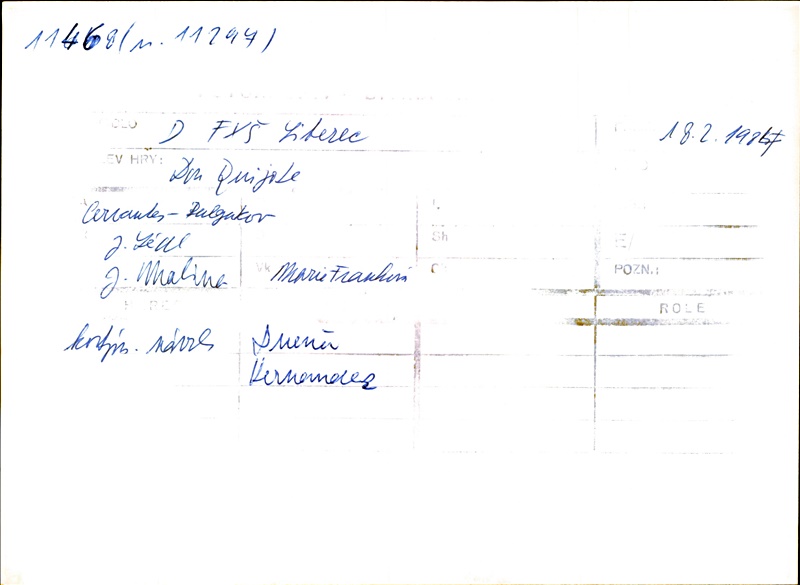 11468 (n. 11297)
D FXŠ Liberec 18.2.1987
EV HRY: Don Quijote
Cervantes - Bulgakov
J.
J. Malina Marie Franková
POZN.:
ROLE
kostým. návrh Dueňa
Hernandez